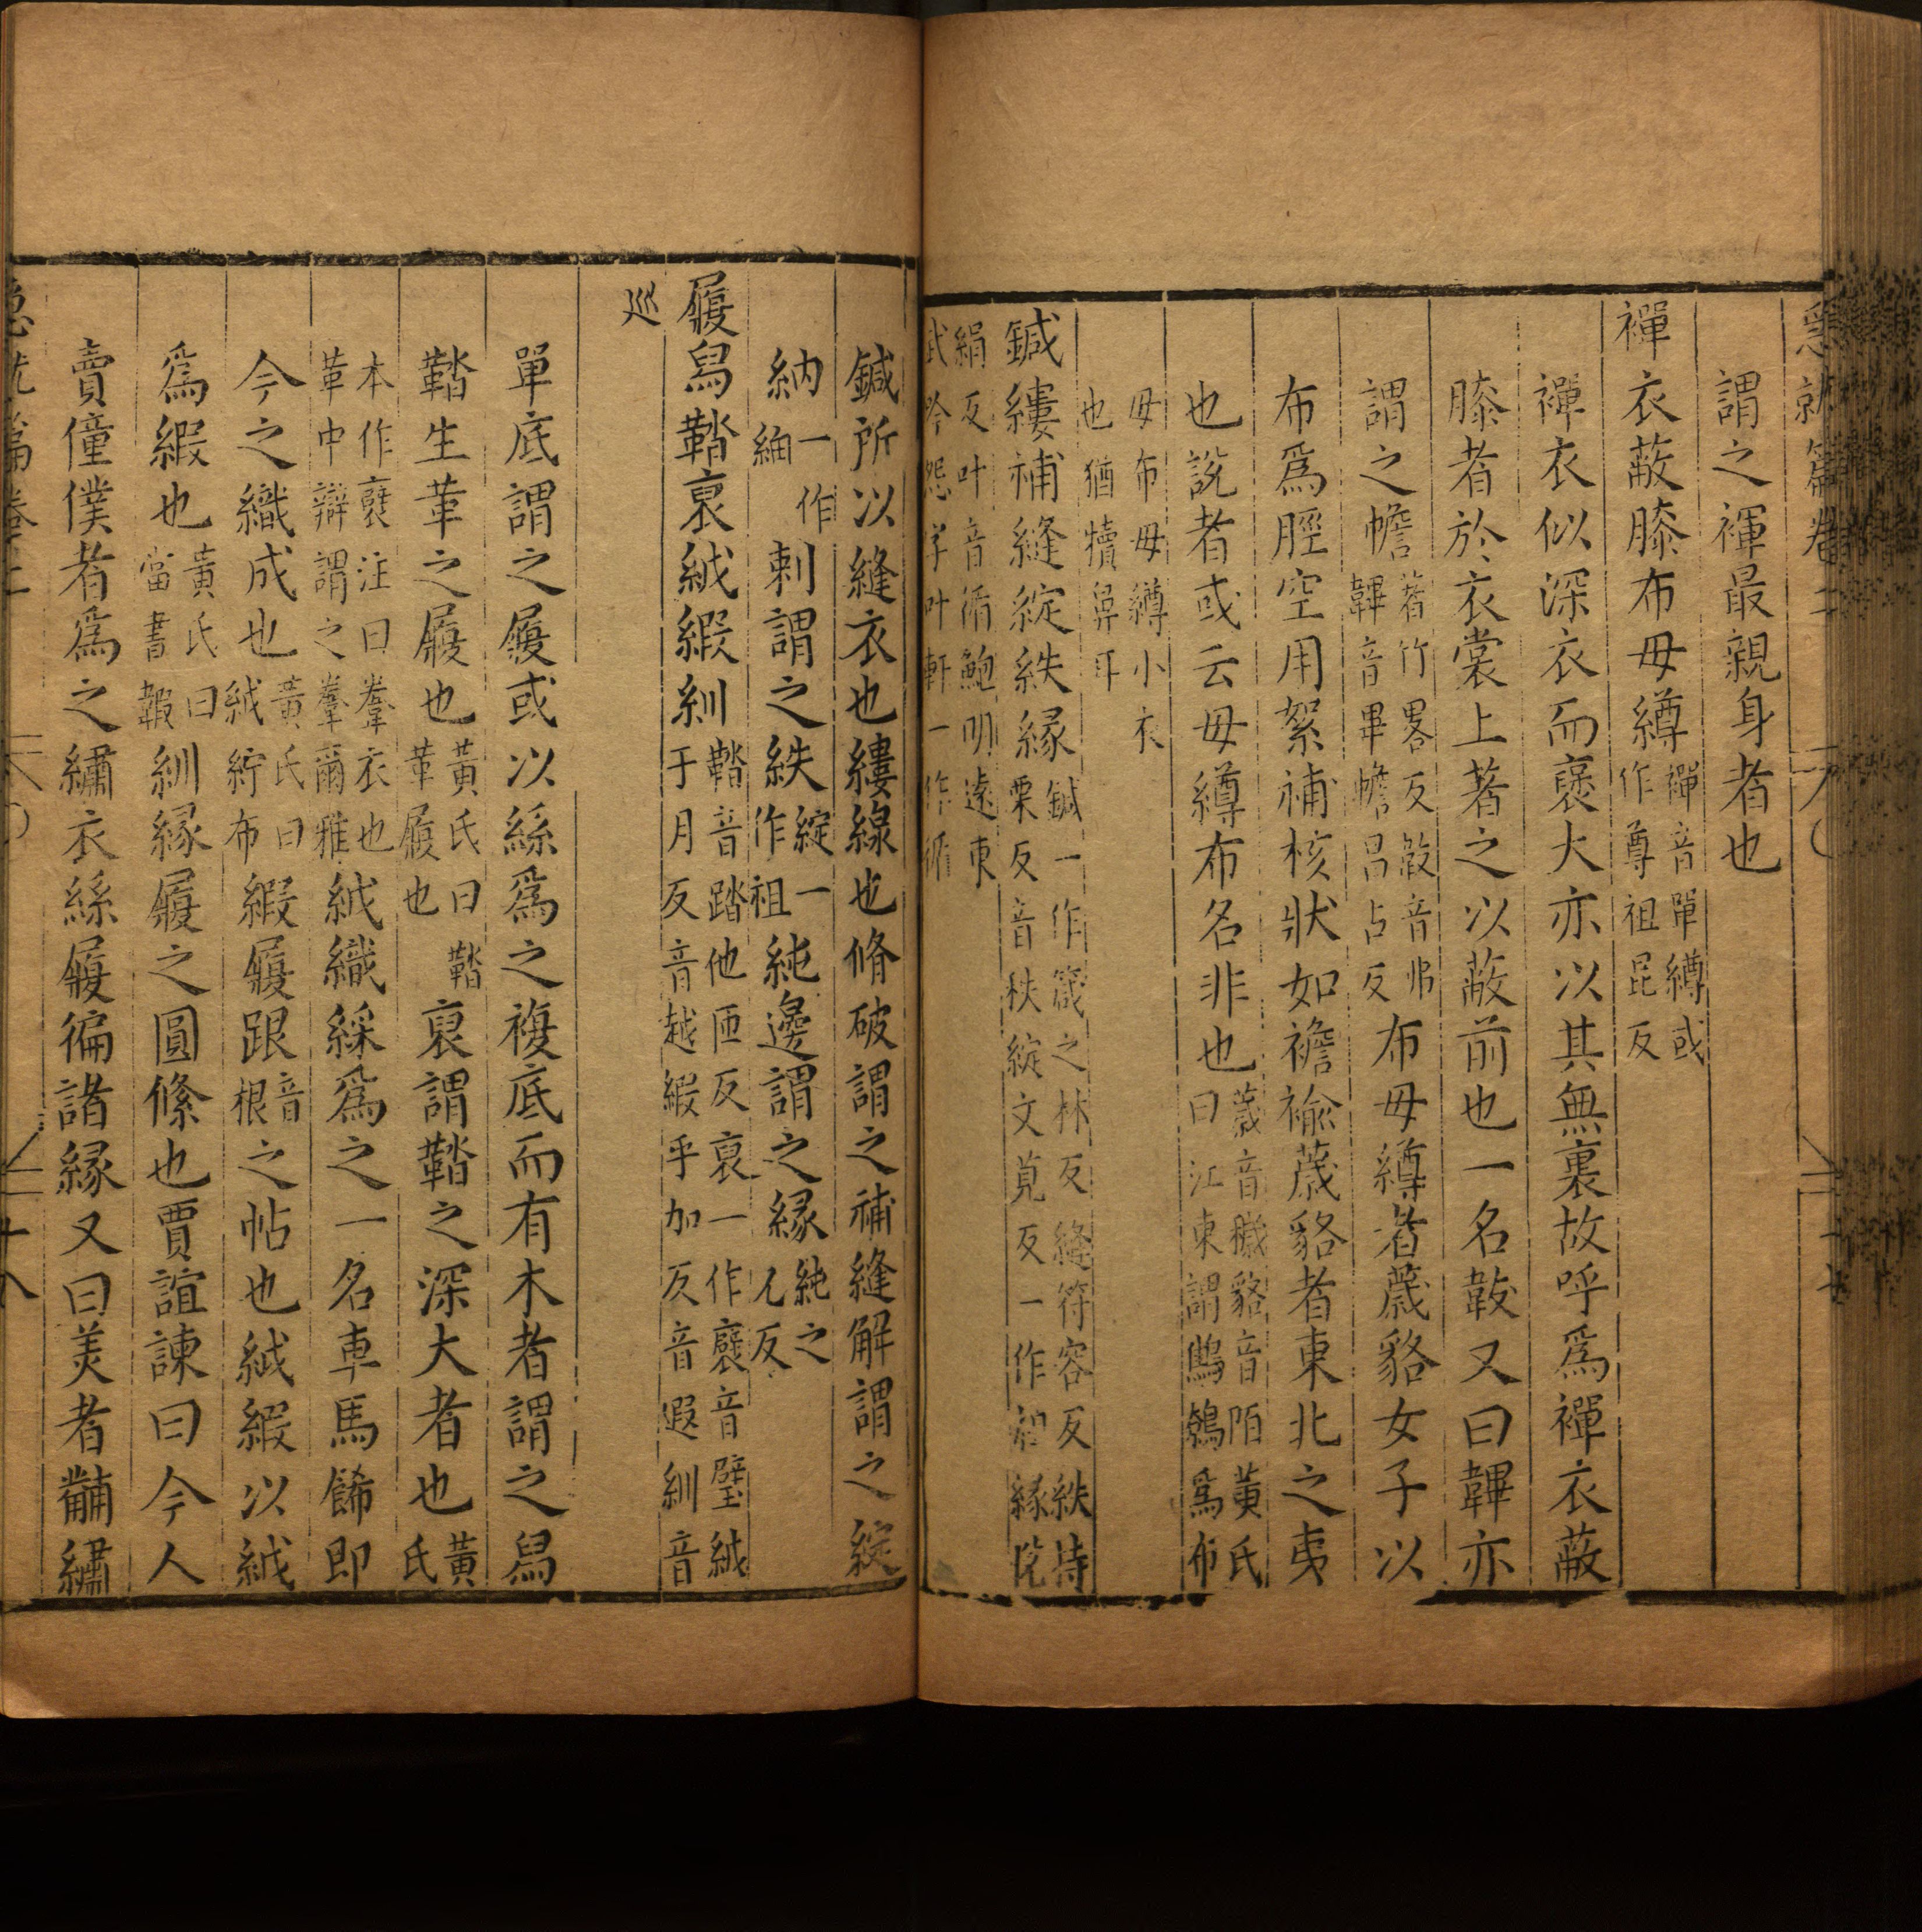 急就篇卷二
十七
謂之褌最親身者也
襌衣蔽膝布毋繜襌音單繜或作尊祖昆反
襌衣似深衣而褒大亦以其無裏故呼爲襌衣蔽
膝者於衣裳上著之以蔽前也一名韍又曰韠亦
謂之幨著竹畧反韍音弗韠音畢幨昌占反布毋繜者薉貉女子以
布爲脛空用絮補核狀如襜褕薉貉者東北之夷
也説者或云毋繜布名非也薉音穢貉音陌黃氏曰江東謂鳭鴒爲布
毋布毋繜小衣也猶犢鼻耳
鍼縷補縫綻紩緣鍼一作箴之林反縫符容反紩持栗反音秩綻文莧反一作緣
絹反叶音循鮑明遠東武吟怨字叶軒一作循
鍼所以縫衣也縷線也脩破謂之補縫解謂之綻
納一作紬刺謂之紩綻一作袒純邊謂之緣純之允反
履舄鞜裒絨緞紃鞜音踏他匝反裒一作襞音璧絨于月反音越緞乎加反音遐紃音
巡
單底謂之履或以絲爲之複底而有木者謂之舄
鞜生革之履也黃氏曰鞜革履也裒謂鞜之深大者也黃氏
本作襞注曰韏衣也革中辯謂之韏爾雅絨織綵爲之一名車馬飾即
今之織成也黃氏曰絨紵布緞履跟音根之帖也絨緞以絨
爲緞也黃氏曰當書䪗紃緣履之圓絛也賈誼諫曰今人
賣僮僕者爲之繡衣絲履徧諸緣又曰美者黼繡
急就篇卷二
十八